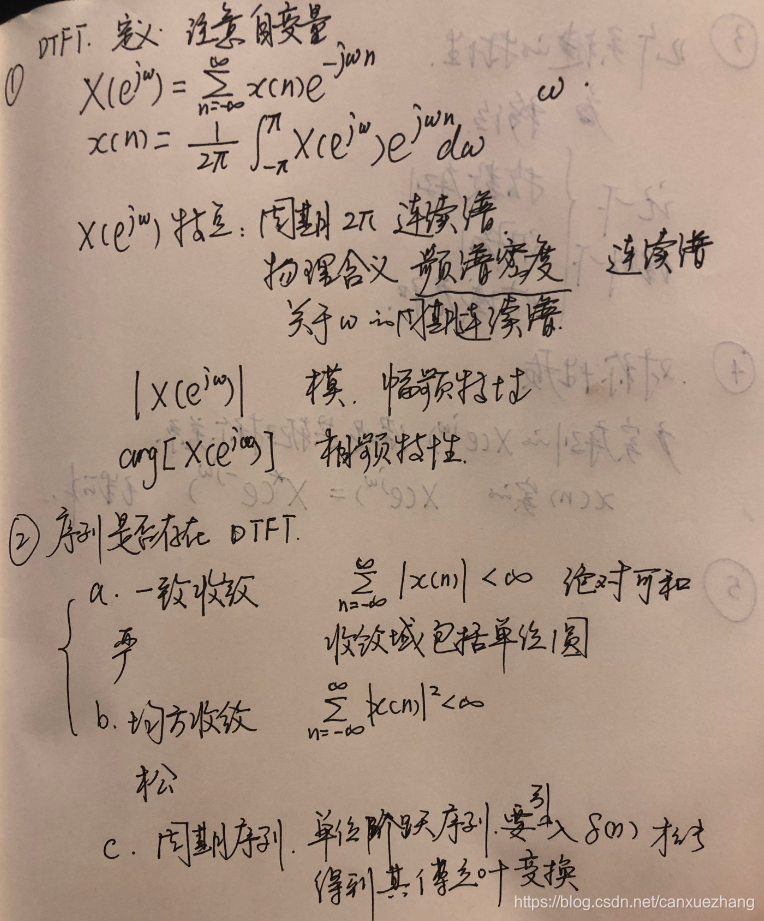 DTFT. 定义. 注意自变量
① X(e^{jω}) = \sum_{n=-∞}^{∞} x(n)e^{-jωn}
ω.
x(n) = \frac{1}{2π} \int_{-π}^{π} X(e^{jω})e^{jωn}dω
X(e^{jω}) 特点: 周期2π 连续谱.
物理含义 频谱密度 连续谱
关于ω的周期连续谱.
|X(e^{jω})| 模. 幅频特性
arg[X(e^{jω})] 相频特性.
② 序列是否存在 DTFT.
a. 一致收敛 \sum_{n=-∞}^{∞} |x(n)| < ∞ 绝对可和
严 收敛域包括单位圆
b. 均方收敛 \sum_{n=-∞}^{∞} |x(n)|^2 < ∞
松
c. 周期序列. 单位阶跃序列. 要引入 δ(n) 才能
得到其傅立叶变换
https://blog.csdn.net/canxuezhang